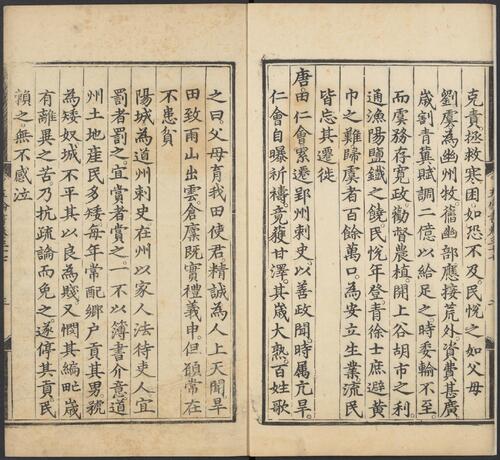 克責。拯救寒困如恐不及。民悅之如父母
劉虞為幽州牧。舊幽部應接荒外。資費甚廣
歲割青冀賦調二億以給足之時委輸不至。
而虞務存寬政勸督農植。開上谷胡市之利。
通漁陽鹽鐵之饒。民悅年登。青徐士庶避黃
巾之難歸虞者百餘萬口。為安立生業流民
皆忘其遷徙
唐。田仁會累遷郢州刺史。以善政聞。時属亢旱
仁會自曝祈禱。竟獲甘澤。其歲大熟。百姓歌
之曰父母育我田使君。精誠為人上天聞旱
田致雨山出雲。倉廩既實禮義申。但願常在
不患貧
陽城為道州刺史在州以家人法待吏人宜
罰者罰之宜賞者賞之。一不以簿書介意。道
州土地産民多矮每年常配鄉户貢其男。號
為矮奴城不平其以良為賤。又憫其編甿歲
有離異之苦乃抗疏論而免之遂停其貢民
賴之。無不感泣